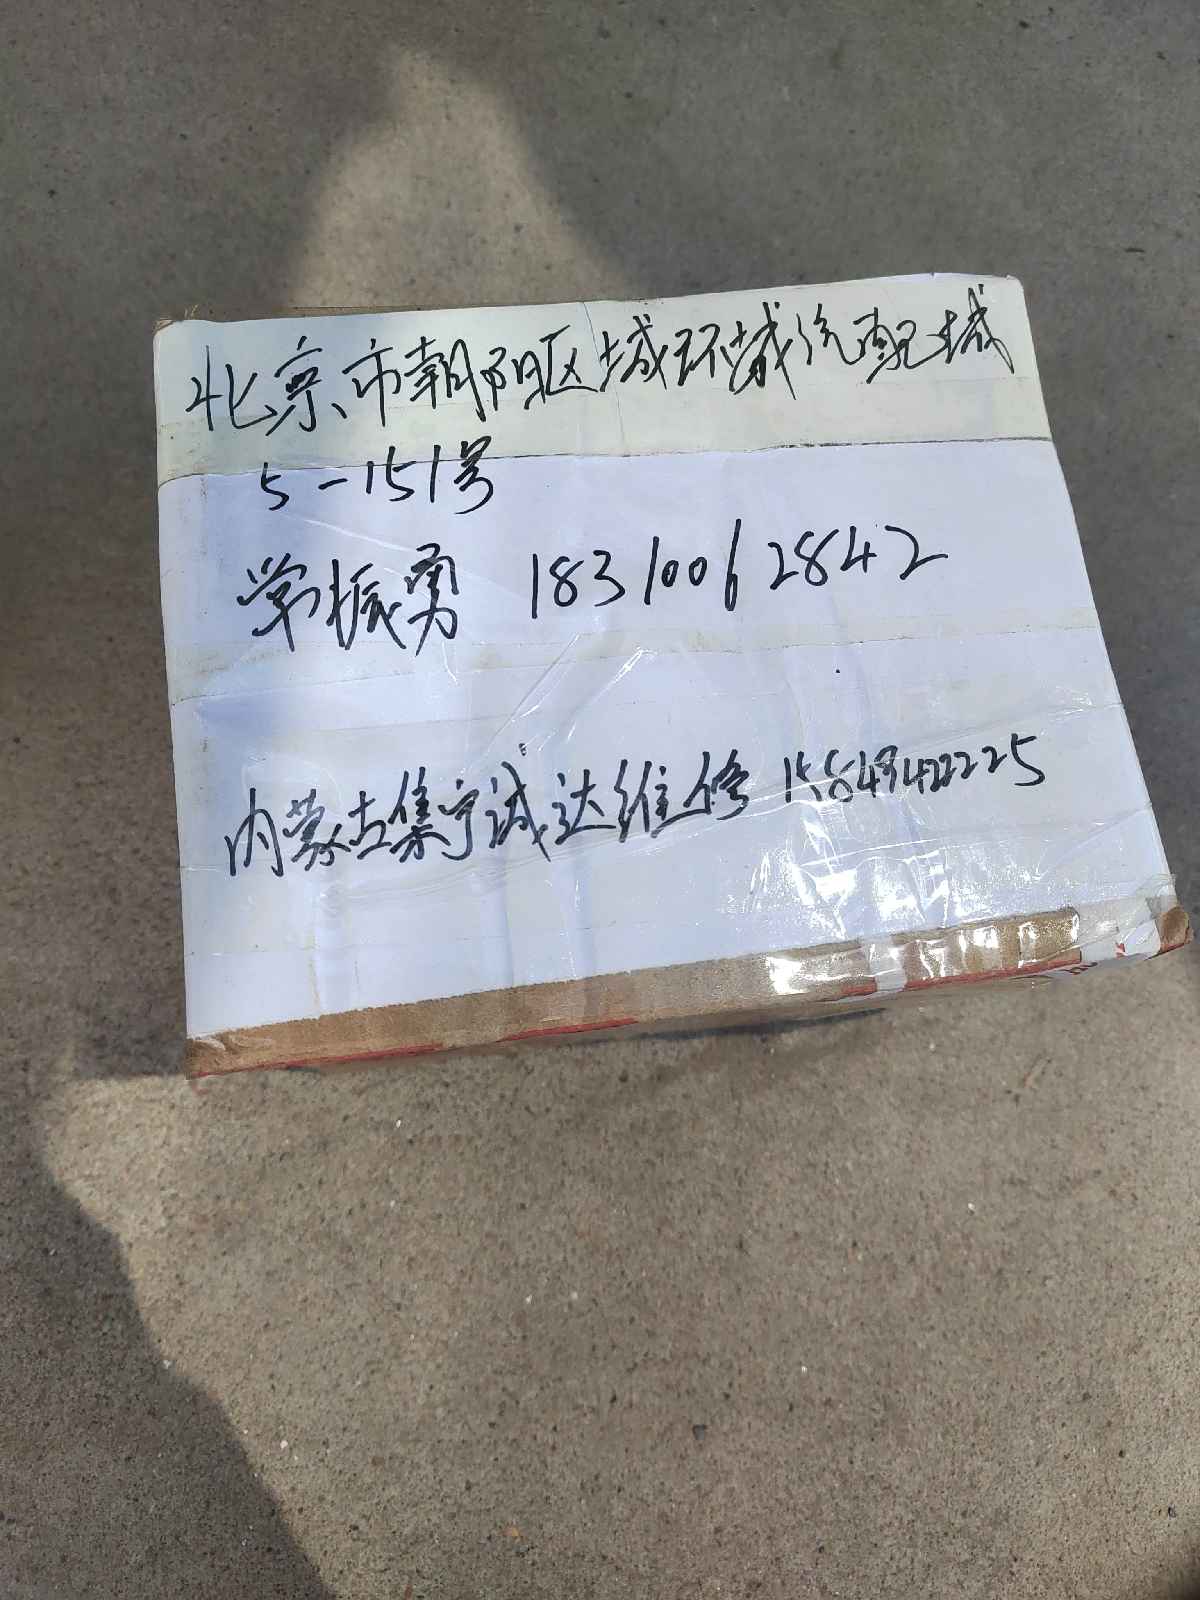 北京市朝阳区城环城汽配城
5-151号
常振勇 18310062842
内蒙古集宁诚达维修 15849422225